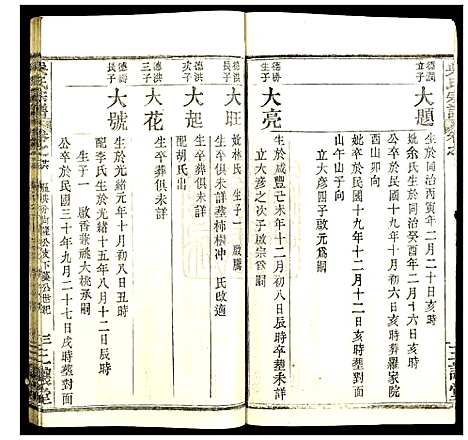 德潤
立子
大題
生於同治丙寅年二月二十日亥時
公卒於民國十九年十二月十二日亥時
妣余氏生於同治癸酉年二月十六日亥時
妣卒於民國十九年十一月初六日亥時葬羅家院
西山卯向
立大彥四子啟元為嗣
山午山子向
德濤
生子
大亮
生於咸豐己未年十二月初八日辰時卒葬未詳
立大彥之次子啟宗為嗣
德洪
長子
大班
妣林氏 生子一 啟騰
生卒葬俱未詳葬柿樹冲 氏改適
德洪
次子
大起
配胡氏出
生卒葬俱未詳
德洪
三子
大花
生卒葬俱未詳
大號
生於光緒元年十月初八日丑時
配李氏生於光緒十五年八月十二日辰時
生子一 啟香兼祧大桃承嗣
公卒於民國三十年九月二十七日戌時葬對面
吳氏宗譜
三讓堂